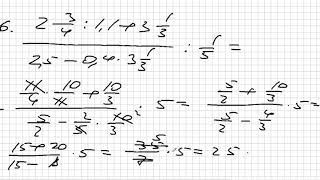 6. (2 3/4 : 1,1 + 3 1/3) / (2,5 − 0,4 · 3 1/3) : 1/5 =
(11/4 · 10/11 + 10/3) / (5/2 − 2/5 · 10/3) · 5 = (5/2 + 10/3) / (5/2 − 4/3) · 5 =
(15 + 20) / (15 − 8) · 5 = 35/7 · 5 = 25.